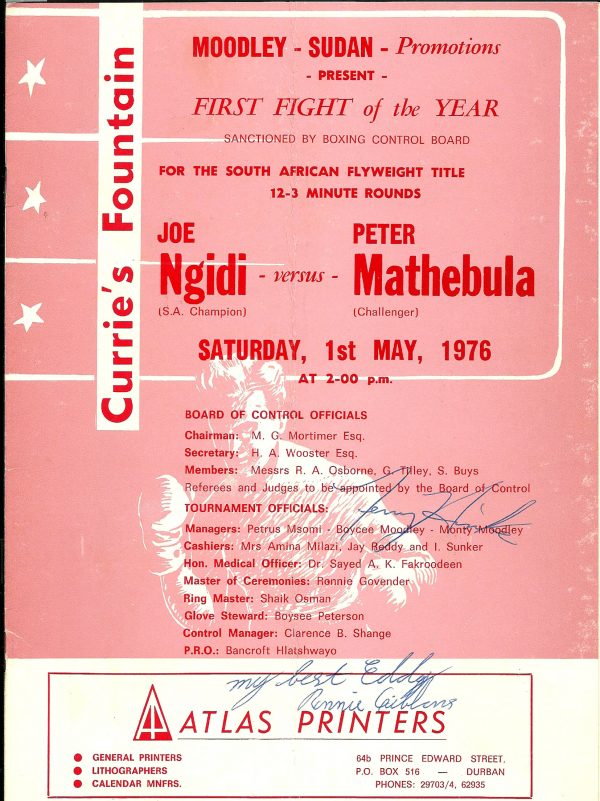 Currie's Fountain
MOODLEY - SUDAN - Promotions
- PRESENT -
FIRST FIGHT of the YEAR
SANCTIONED BY BOXING CONTROL BOARD
FOR THE SOUTH AFRICAN FLYWEIGHT TITLE
12-3 MINUTE ROUNDS
JOE Ngidi - versus - PETER Mathebula
(S.A. Champion) (Challenger)
SATURDAY, 1st MAY, 1976
AT 2-00 p.m.
BOARD OF CONTROL OFFICIALS
Chairman: M. G. Mortimer Esq.
Secretary: H. A. Wooster Esq.
Members: Messrs R. A. Osborne, G. Tilley, S. Buys
Referees and Judges to be appointed by the Board of Control
TOURNAMENT OFFICIALS:
Managers: Petrus Msomi - Boycee Moodley - Monty Moodley
Cashiers: Mrs Amina Milazi, Jay Reddy and I. Sunker
Hon. Medical Officer: Dr. Sayed A. K. Fakroodeen
Master of Ceremonies: Ronnie Govender
Ring Master: Shaik Osman
Glove Steward: Boysee Peterson
Control Manager: Clarence B. Shange
P.R.O.: Bancroft Hlatshwayo
my best Eddy
ATLAS PRINTERS
● GENERAL PRINTERS
● LITHOGRAPHERS
● CALENDAR MNFRS.
64b PRINCE EDWARD STREET,
P.O. BOX 516 — DURBAN
PHONES: 29703/4, 62935